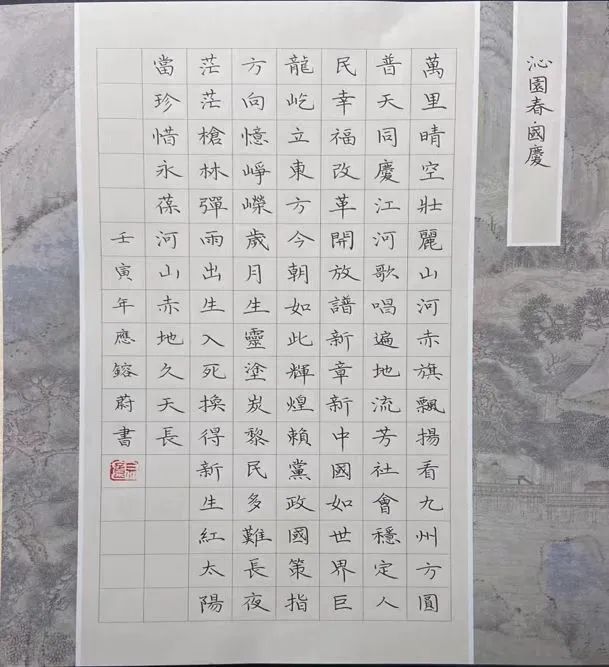 沁園春·國慶
萬里晴空壯麗山河赤旗飄揚看九州方圓
普天同慶江河歌唱遍地流芳社會穩定人
民幸福改革開放譜新章新中國如世界巨
龍屹立東方今朝如此輝煌賴黨政國策指
方向憶崢嶸歲月生靈塗炭黎民多難長夜
茫茫槍林彈雨出生入死換得新生紅太陽
當珍惜永葆河山赤地久天長
壬寅年應鎔蔚書